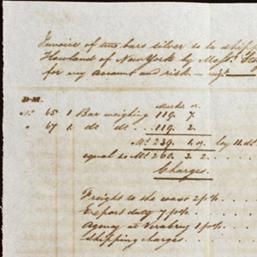 Invoice of two bars silver to be shipp
Howland of New York by Messrs.
for my account and risk
D.M. Marks oz.
No. 65 1 Bar weighing 119. 7.
" 67 1. dt dt . . . 119. 2.
Ms. 239. 1. oz. ley 12. dt
equal to Ms. 261. 3. 2. . .
Charges.
Freight to the coast 2 p%. . . .
Export duty 7 p%. . . .
Agency at Veracruz 1 p%. . . .
Shipping charges . . . .